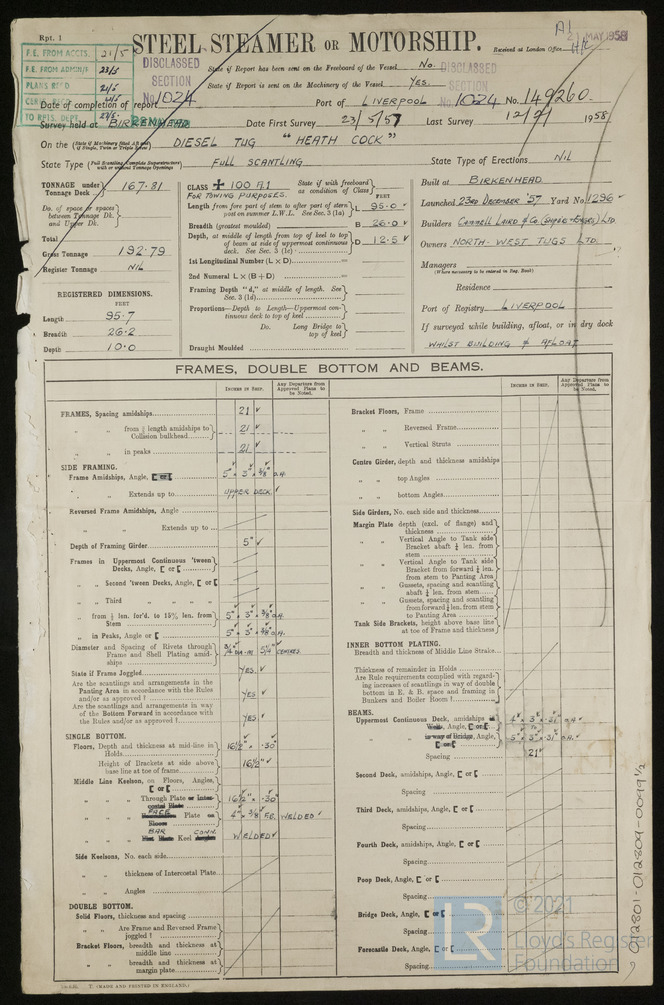 Rpt. 1
STEEL STEAMER OR MOTORSHIP.
A1
21 MAY 1958
Received at London Office
F.E. FROM ACCTS. 21/5
F.E. FROM ADMINS
PLANS REC'D
TO RPTS. DEPT.
DISCLASSED
SECTION
No 1024
State if Report has been sent on the Freeboard of the Vessel No.
State if Report is sent on the Machinery of the Vessel Yes.
DISCLASSED
SECTION
No 1024
Date of completion of report
Port of LIVERPOOL No. 149260.
Survey held at BIRKENHEAD Date First Survey 23/5/57 Last Survey 1958
On the (State if Machinery Aft and if Single, Twin or Triple Screw) DIESEL TUG "HEATH COCK"
State Type (Full Scantling, Complete Superstructure with or without Tonnage Openings) FULL SCANTLING State Type of Erections NIL
TONNAGE under Tonnage Deck 167.81
Do. of space or spaces between Tonnage Dk. and Upper Dk.
Total
Gross Tonnage 192.79
Register Tonnage NIL
REGISTERED DIMENSIONS.
FEET
Length 95.7
Breadth 26.2
Depth 10.0
CLASS + 100 A1 State if with freeboard as condition of Class
FOR TOWING PURPOSES.
FEET
Length from fore part of stem to after part of stern post on summer L.W.L. See Sec. 3 (1a) L 95.0
Breadth (greatest moulded) B 26.0
Depth, at middle of length from top of keel to top of beam at side of uppermost continuous deck. See Sec. 3 (1c) D 12.5
1st Longitudinal Number (L × D)
2nd Numeral L × (B + D)
Framing Depth "d," at middle of length. See Sec. 3 (1d)
Proportions—Depth to Length—Uppermost continuous deck to top of keel
Do. Long Bridge to top of keel
Draught Moulded
Built at BIRKENHEAD
Launched 23RD DECEMBER '57 Yard No. 1296
Builders CAMMELL LAIRD & CO (SHIPB. & ENGRS) LTD
Owners NORTH-WEST TUGS LTD.
Managers
(Where necessary to be entered in Reg. Book)
Residence
Port of Registry LIVERPOOL
If surveyed while building, afloat, or in dry dock
WHILST BUILDING & AFLOAT
FRAMES, DOUBLE BOTTOM AND BEAMS.
INCHES IN SHIP.
Any Departures from Approved Plans to be Noted.
FRAMES, Spacing amidships 21
" " from ⅕ length amidships to Collision bulkhead 21
" " in peaks 21
SIDE FRAMING.
Frame Amidships, Angle, [ or [ 5" × 3" × 3/8" O.A.
" " Extends up to UPPER DECK
Reversed Frame Amidships, Angle
" " Extends up to
Depth of Framing Girder 5"
Frames in Uppermost Continuous 'tween Decks, Angle, [ or [
" " Second 'tween Decks, Angle, [ or [
" " Third " " " "
" from ⅕ len. for'd. to 15% len. from Stem 5" × 3" × 3/8" O.A.
" in Peaks, Angle or [ 5" × 3" × 3/8" O.A.
Diameter and Spacing of Rivets through Frame and Shell Plating amidships 3/4" DIA. RE 5 1/4" CENTRES.
State if Frame Joggled YES.
Are the scantlings and arrangements in the Panting Area in accordance with the Rules and/or as approved? YES
Are the scantlings and arrangements in way of the Bottom Forward in accordance with the Rules and/or as approved? YES
SINGLE BOTTOM.
Floors, Depth and thickness at mid-line in Holds 16½" × .30"
Height of Brackets at side above base line at toe of frame 16½"
Middle Line Keelson, on Floors, Angles, [ or [
" " Through Plate or Intercostal Plate 16½" × .30"
" " FACE Plate on Floors 4" × 3/8 F.B. WELDED
" " BAR Keel CONN. WELDED
Side Keelsons, No. each side
" " thickness of Intercostal Plate
" " Angles
DOUBLE BOTTOM.
Solid Floors, thickness and spacing
" " Are Frame and Reversed Frame joggled?
Bracket Floors, breadth and thickness at middle line
" " breadth and thickness at margin plate
INCHES IN SHIP.
Any Departures from Approved Plans to be Noted.
Bracket Floors, Frame
" " Reversed Frame
" " Vertical Struts
Centre Girder, depth and thickness amidships
" " top Angles
" " bottom Angles
Side Girders, No. each side and thickness
Margin Plate depth (excl. of flange) and thickness
" " Vertical Angle to Tank side Bracket abaft ¼ len. from stem
" " Vertical Angle to Tank side Bracket from forward ¼ len. from stem to Panting Area
" " Gussets, spacing and scantling abaft ¼ len. from stem
" " Gussets, spacing and scantling from forward ¼ len. from stem to Panting Area
Tank Side Brackets, height above base line at toe of Frame and thickness
INNER BOTTOM PLATING.
Breadth and thickness of Middle Line Strake
Thickness of remainder in Holds
Are Rule requirements complied with regarding increases of scantlings in way of double bottom in E. & B. space and framing in Bunkers and Boiler Room?
BEAMS.
Uppermost Continuous Deck, amidships in Wells, Angle, [ or [ 4" × 3" × .31" O.A.
" " in way of Bridge, Angle, [ or [ 5" × 3" × .31" O.A.
Spacing 21"
Second Deck, amidships, Angle, [ or [
Spacing
Third Deck, amidships, Angle, [ or [
Spacing
Fourth Deck, amidships, Angle, [ or [
Spacing
Poop Deck, Angle, [ or [
Spacing
Bridge Deck, Angle, [ or [
Spacing
Forecastle Deck, Angle, [ or [
Spacing
T. (MADE AND PRINTED IN ENGLAND.)
LR
© 2021
Lloyd's Register
Foundation
012801-012809-0099 1/2